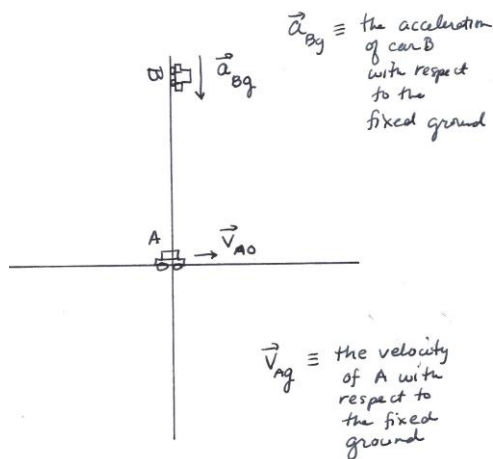 a⃗_Bg ≡ the acceleration
of car B
with respect
to the
fixed ground
B
a⃗_Bg
A
V⃗_AO
V⃗_Ag ≡ the velocity
of A with
respect to
the fixed
ground